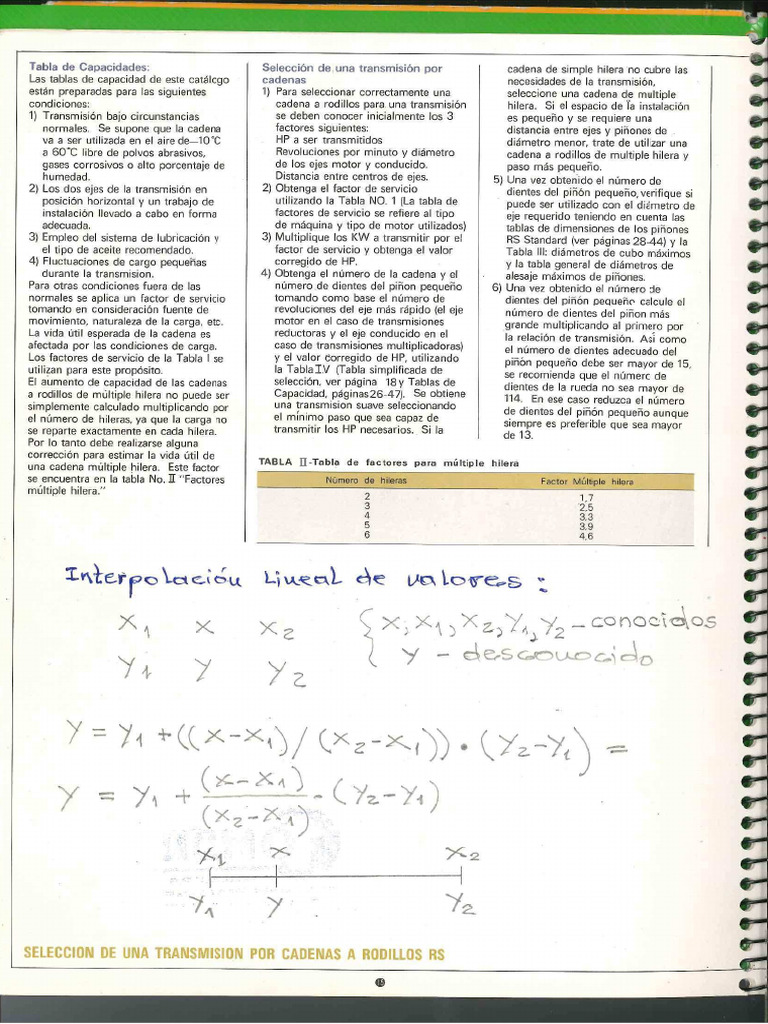 Tabla de Capacidades:
Las tablas de capacidad de este catálcgo
están preparadas para las siguientes
condiciones:
1) Transmisión bajo circunstancias
normales. Se supone que la cadena
va a ser utilizada en el aire de—10°C
a 60°C libre de polvos abrasivos,
gases corrosivos o alto porcentaje de
humedad.
2) Los dos ejes de la transmisión en
posición horizontal y un trabajo de
instalación llevado a cabo en forma
adecuada.
3) Empleo del sistema de lubricación y
el tipo de aceite recomendado.
4) Fluctuaciones de cargo pequeñas
durante la transmision.
Para otras condiciones fuera de las
normales se aplica un factor de servicio
tomando en consideración fuente de
movimiento, naturaleza de la carga, etc.
La vida útil esperada de la cadena es
afectada por las condiciones de carga.
Los factores de servicio de la Tabla I se
utilizan para este propósito.
El aumento de capacidad de las cadenas
a rodillos de múltiple hilera no puede ser
simplemente calculado multiplicando por
el número de hileras, ya que la carga no
se reparte exactamente en cada hilera.
Por lo tanto debe realizarse alguna
corrección para estimar la vida útil de
una cadena múltiple hilera. Este factor
se encuentra en la tabla No. II "Factores
múltiple hilera."
Selección de una transmisión por
cadenas
1) Para seleccionar correctamente una
cadena a rodillos para una transmisión
se deben conocer inicialmente los 3
factores siguientes:
HP a ser transmitidos
Revoluciones por minuto y diámetro
de los ejes motor y conducido.
Distancia entre centros de ejes.
2) Obtenga el factor de servicio
utilizando la Tabla NO. 1 (La tabla de
factores de servicio se refiere al tipo
de máquina y tipo de motor utilizados)
3) Multiplique los KW a transmitir por el
factor de servicio y obtenga el valor
corregido de HP.
4) Obtenga el número de la cadena y el
número de dientes del piñon pequeño
tomando como base el número de
revoluciones del eje más rápido (el eje
motor en el caso de transmisiones
reductoras y el eje conducido en el
caso de transmisiones multiplicadoras)
y el valor corregido de HP, utilizando
la Tabla IV (Tabla simplificada de
selección, ver página 18 y Tablas de
Capacidad, páginas 26-47). Se obtiene
una transmision suave seleccionando
el mínimo paso que sea capaz de
transmitir los HP necesarios. Si la
cadena de simple hilera no cubre las
necesidades de la transmisión,
seleccione una cadena de multiple
hilera. Si el espacio de la instalación
es pequeño y se requiere una
distancia entre ejes y piñones de
diámetro menor, trate de utilizar una
cadena a rodillos de multiple hilera y
paso más pequeño.
5) Una vez obtenido el número de
dientes del piñón pequeño, verifique si
puede ser utilizado con el diámetro de
eje requerido teniendo en cuenta las
tablas de dimensiones de los piñones
RS Standard (ver páginas 28-44) y la
Tabla III: diámetros de cubo máximos
y la tabla general de diámetros de
alesaje máximos de piñones.
6) Una vez obtenido el número de
dientes del piñón pequeño calcule el
número de dientes del piñon más
grande multiplicando al primero por
la relación de transmisión. Así como
el número de dientes adecuado del
piñón pequeño debe ser mayor de 15,
se recomienda que el número de
dientes de la rueda no sea mayor de
114. En ese caso reduzca el número
de dientes del piñón pequeño aunque
siempre es preferible que sea mayor
de 13.
TABLA II-Tabla de factores para múltiple hilera
Número de hileras Factor Múltiple hilera
2 1,7
3 2.5
4 3.3
5 3.9
6 4,6
Interpolación Lineal de valores:
X1 X X2 { X, X1, X2, Y1, Y2 – conocidos
Y1 Y Y2 Y – desconocido
Y = Y1 + ((X–X1)/(X2–X1)) • (Y2–Y1) =
Y = Y1 + (X–X1)/(X2–X1) • (Y2–Y1)
X1 X X2
Y1 Y Y2
SELECCION DE UNA TRANSMISION POR CADENAS A RODILLOS RS
15